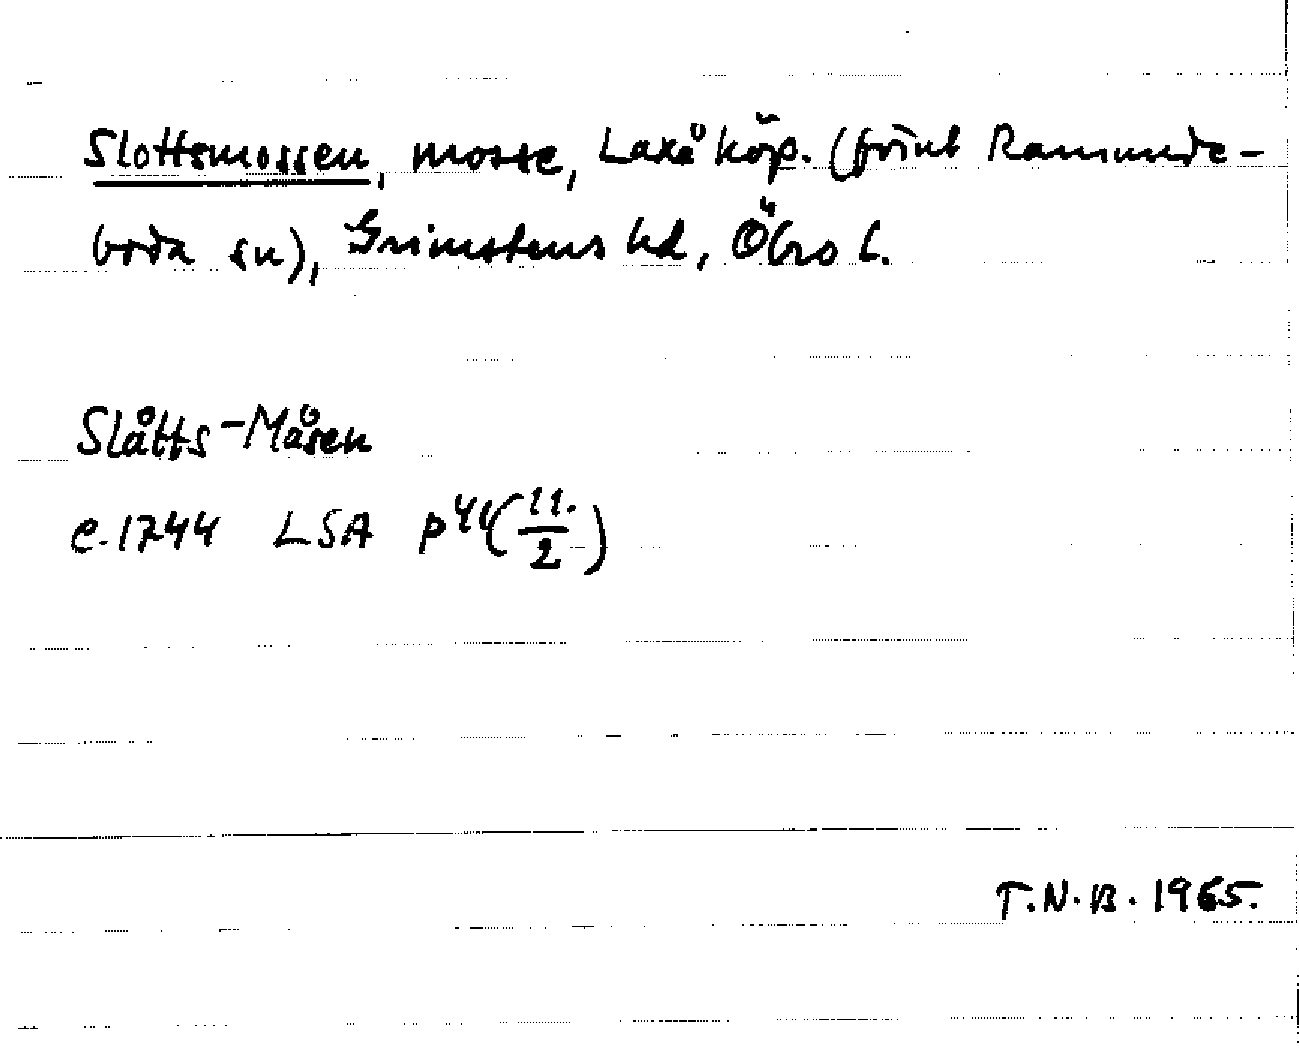 Slottsmossen, mosse, Laxå köp. (förut Ramunde-
boda sn), Grimstens hd, Öbro l.
Slåtts-Måsen
c. 1744 LSA P 44 (11./2)
T.N.B. 1965.